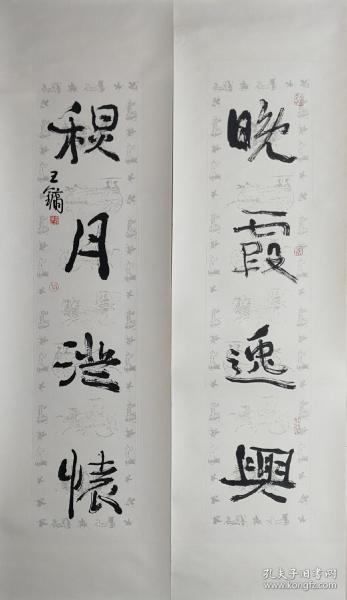 晚霞逸興
秋月澄懷
王鏞
孔夫子旧书网